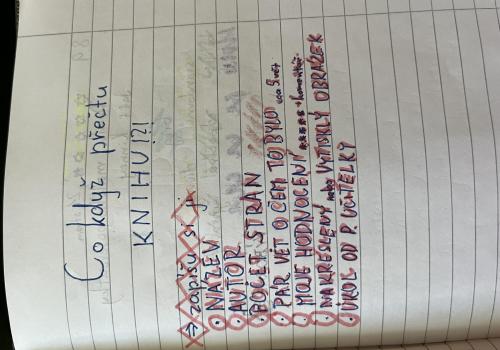 Co když přečtu
KNIHU!?!
⇒ zapíšu si ji
• NÁZEV
• AUTOR
• POČET STRAN
• PÁR VĚT O ČEM TO BYLO ... 5 vět
• MOJE HODNOCENÍ ***** + komentář
• NAKRESLENÝ nebo VYTISKLÝ OBRÁZEK
• ÚKOL OD P. UČITELKY